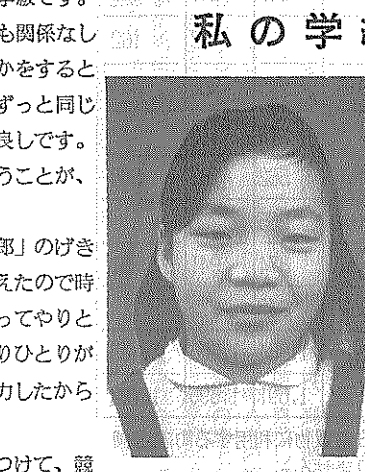 私の学
学級です。
も関係なし
かをすると
ずっと同じ
良しです。
うことが、
郎」のげき
えたので時
ってやりと
りひとりが
力したから
つけて、競